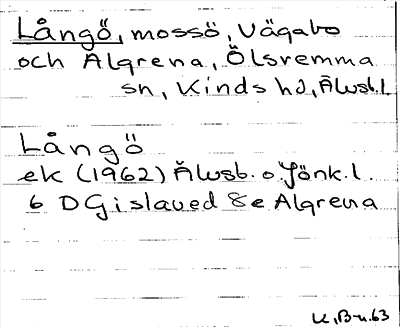 Långö, mossö, Vägabo
och Älgrena, Ölsremma
sn, Kinds hd, Älvsb.l.
Långö
ek (1962) Älvsb. o. Jönk. l.
6 D Gislaved 8e Älgrena
K, B-n. 63